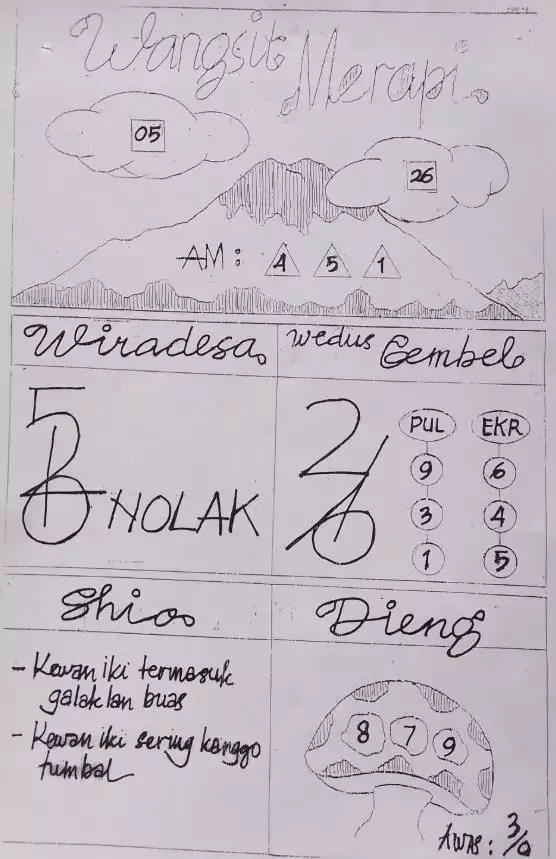 Wangsit Merapi.
05
26
AM: 4 5 1
Wiradesa.
NOLAK
Wedus Gembel.
PUL EKR
9 6
3 4
1 5
Shio.
- Kewan iki termasuk
galak lan buas
- Kewan iki sering kanggo
tumbal
Dieng
8 7 9
Awas: 3/0